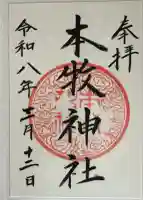 奉拝
本牧神社
令和八年二月十二日